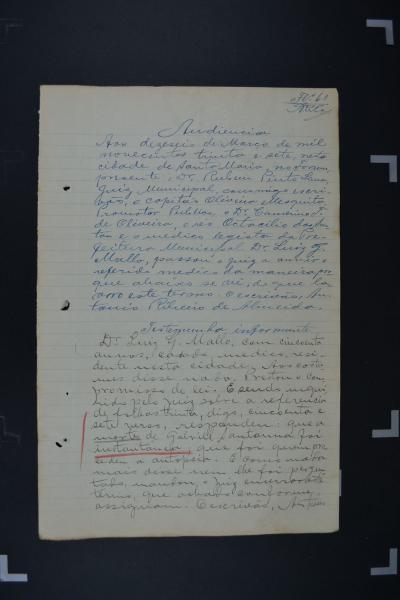 Audiencia
Aos dezeseis de Março de mil
novecentos trinta e sete, nesta
cidade de Santa Maria, no fórum
presente o Dr. Rubem Pinto
Juiz Municipal, commigo escri-
vão, o capitão Oliveiro Mesquita,
Promotor Publico, o Dr.
de Oliveira, o réo Octacilio dos San-
tos e o medico legista da Pre-
feitura Municipal Dr. Luiz G.
Mallo, passou o Juiz a ouvir o
referido medico da maneira por
que abaixo se vê, do que la-
vro este termo. O escrivão, An-
tonio Ribeiro de Almeida.
Testemunha informante
Dr. Luiz G. Mallo, com cincoenta
annos, casado, medico, resi-
dente nesta cidade. Aos costu-
mes disse nada. Prestou o com-
promisso de lei. E sendo inqui-
rido pelo Juiz sobre a referencia
de folhas trinta, digo, cincoenta e
sete verso, respondeu: que a
morte de Gabriel Santanna foi
instantanea, que foi quem pro-
cedeu a autopsia. E como nada
mais disse nem lhe foi pergun-
tado, mandou o Juiz encerrar este
termo, que achado conforme,
assignam. O escrivão, Antonio